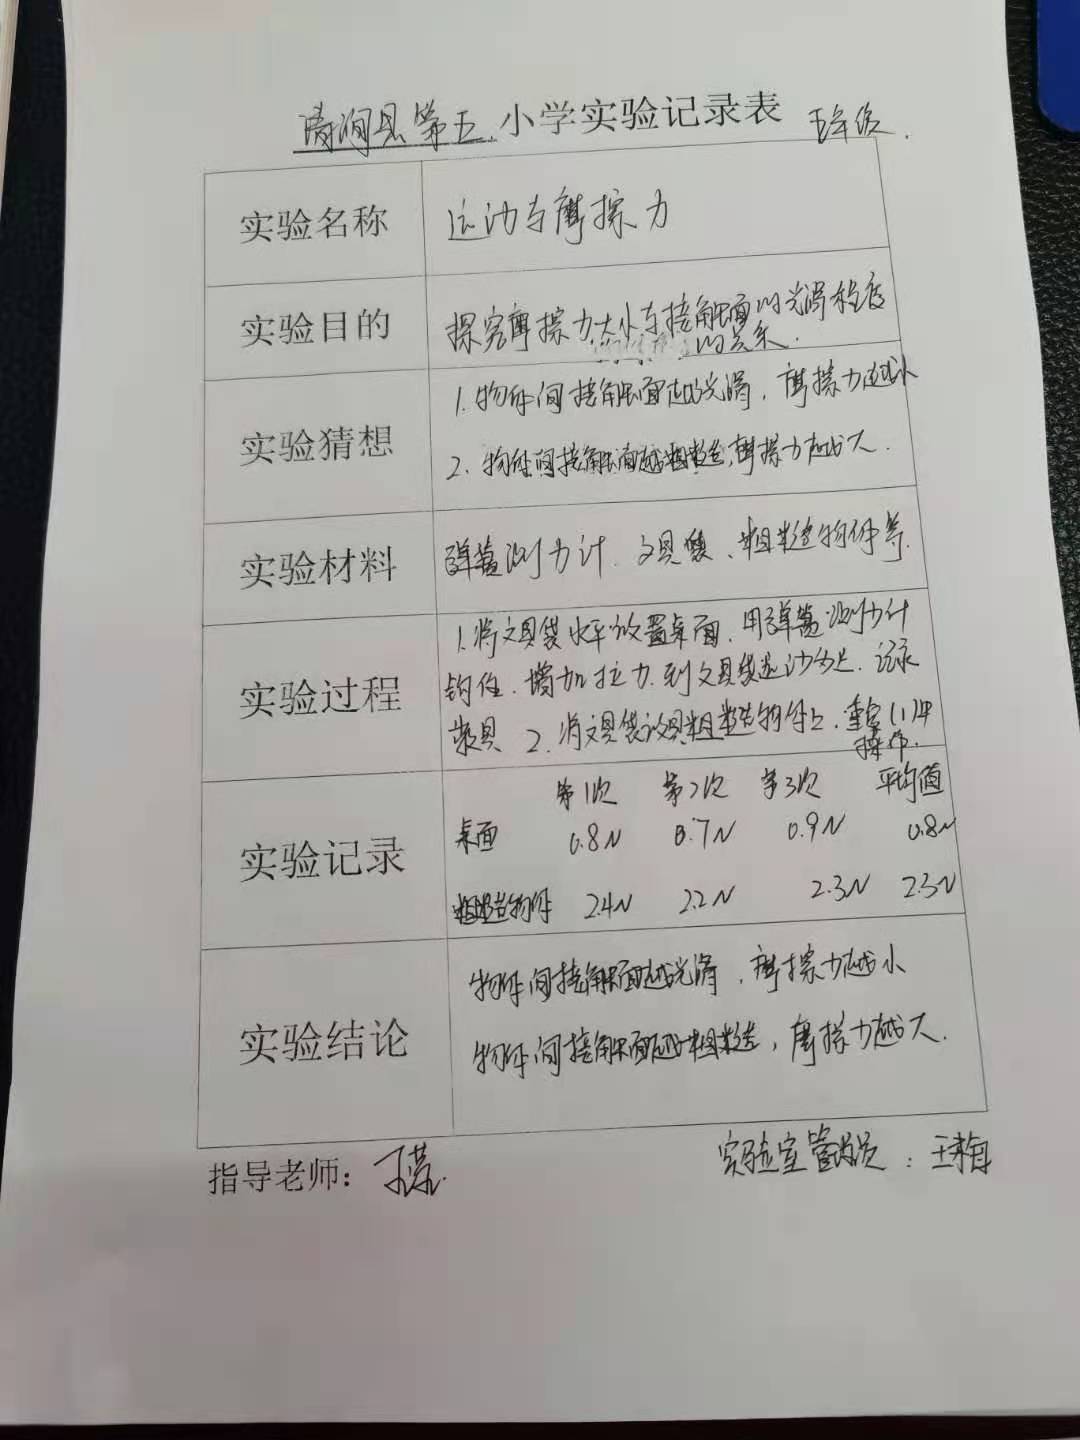 清涧县第五小学实验记录表 五年级.
实验名称 运动与摩擦力
实验目的 探究摩擦力大小与接触面的光滑程度
的关系.
实验猜想 1. 物体间接触面越光滑，摩擦力越小
2. 物体间接触面越粗糙，摩擦力越大.
实验材料 弹簧测力计、文具袋、粗糙物件等.
实验过程 1.将文具袋水平放置桌面，用弹簧测力计
钩住，增加拉力，到文具袋运动为止，记录
2. 将文具袋 粗糙物件上，重复(1)中
操作.
第1次 第2次 第3次 平均值
桌面 0.8N 0.7N 0.9N 0.8N
实验记录
粗糙物件 2.4N 2.2N 2.3N 2.3N
物体间接触面越光滑，摩擦力越小
实验结论
物体间接触面越粗糙，摩擦力越大.
指导老师： 实验室管理员：王梅